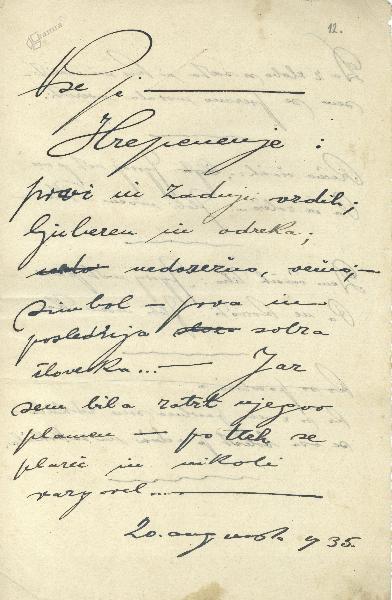 12.
Vse je
Hrepenenje:
prvi in zadnji vzdih;
ljubezen in odreka;
nedosežno, večno,
simbol – prva in
poslednja solza
človeka... – Jaz
sem bila zatrt njegov
plamen – po tleh se
plazeč in nikoli
20. avgusta 935.